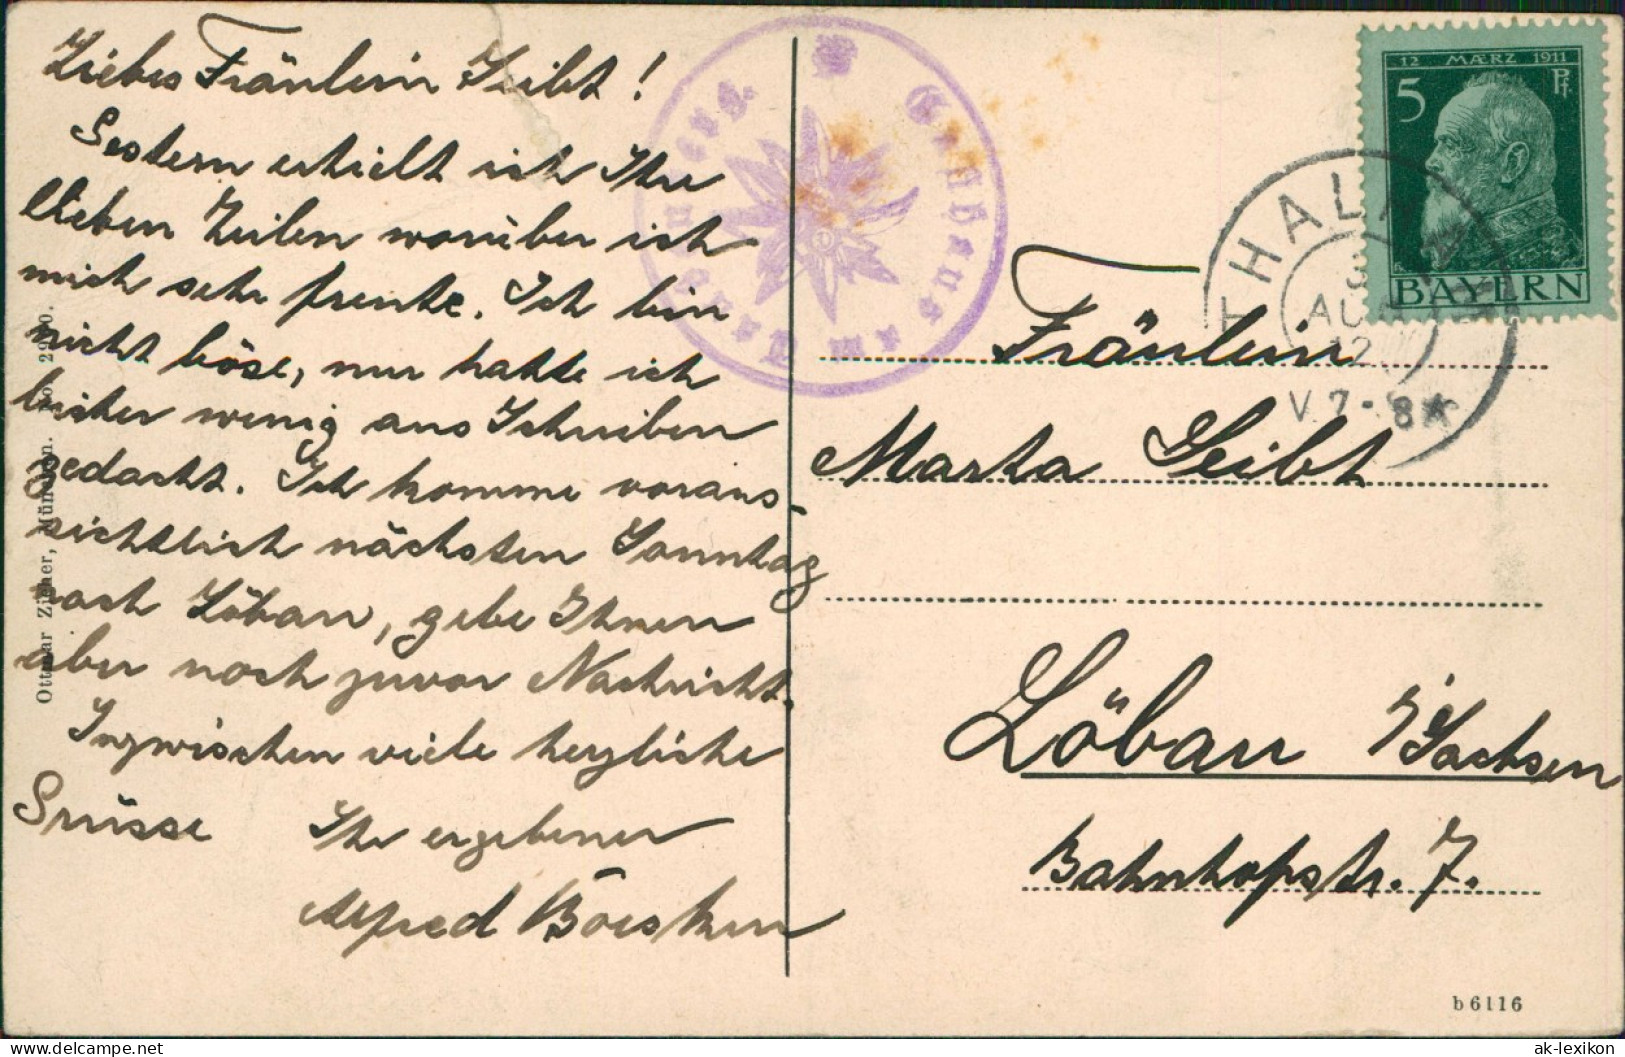 Liebes Fräulein Seibt!
Gestern erhielt ich Ihre
lieben Zeilen worüber ich
mich sehr freute. Ich bin
nicht böse, nur hatte ich
bisher wenig ans Schreiben
gedacht. Ich komme voraus-
sichtlich nächsten Sonntag
nach Löbau, gebe Ihnen
aber noch zuvor Nachricht.
Inzwischen viele herzliche
Grüsse Ihr ergebener
Alfred
Ottmar Zieher, München.
12 MÆRZ 1911
5 Pf.
BAYERN
THALK
3
AUG
12
V. 7-8★
Fräulein
Marta Seibt
Löbau i/Sachsen
Bahnhofstr. 7.
b6116
delcampe.net
ak-lexikon